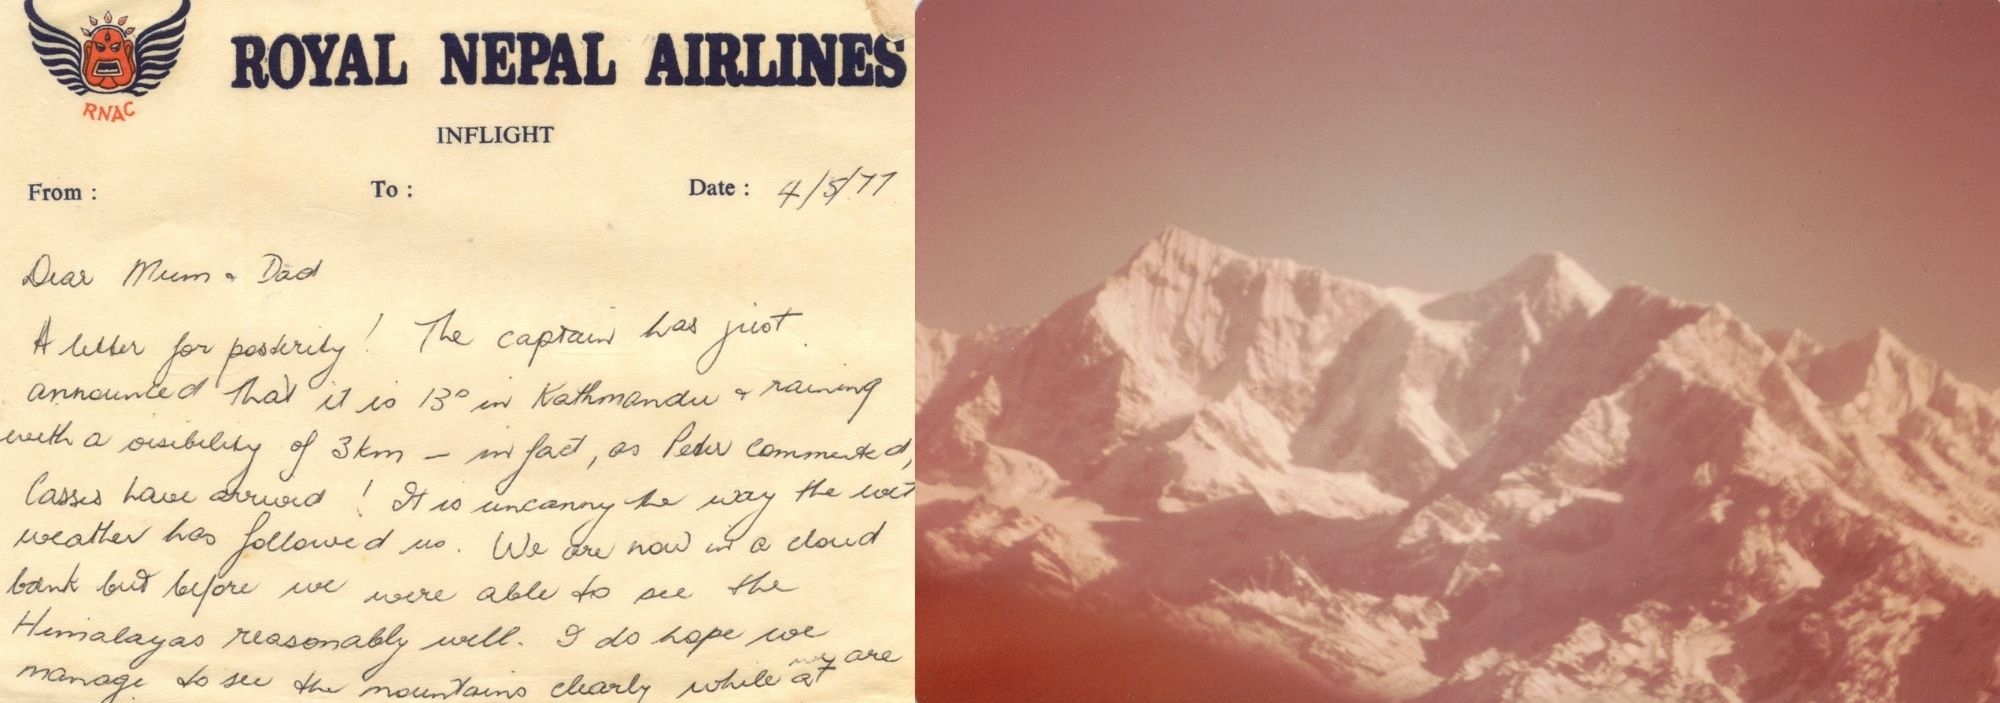 RNAC
ROYAL NEPAL AIRLINES
INFLIGHT
From : To : Date : 4/5/77
Dear Mum & Dad
A letter for posterity! The captain has just
announced that it is 13° in Kathmandu & raining
with a visibility of 3km – in fact, as Peter commented,
Casses have arrived! It is uncanny the way the wet
weather has followed us. We are now in a cloud
bank but before we were able to see the
Himalayas reasonably well. I do hope we
manage to see the mountains clearly while we are
at